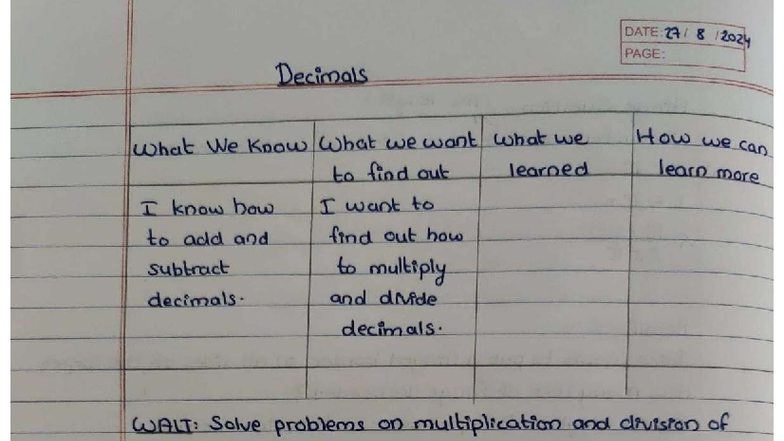 DATE: 27/ 8 /2024
PAGE:
Decimals
What We Know
What we want to find out
What we learned
How we can learn more
I know how
to add and
subtract
decimals.
I want to
find out how
to multiply
and divide
decimals.
WALT: Solve problems on multiplication and division of